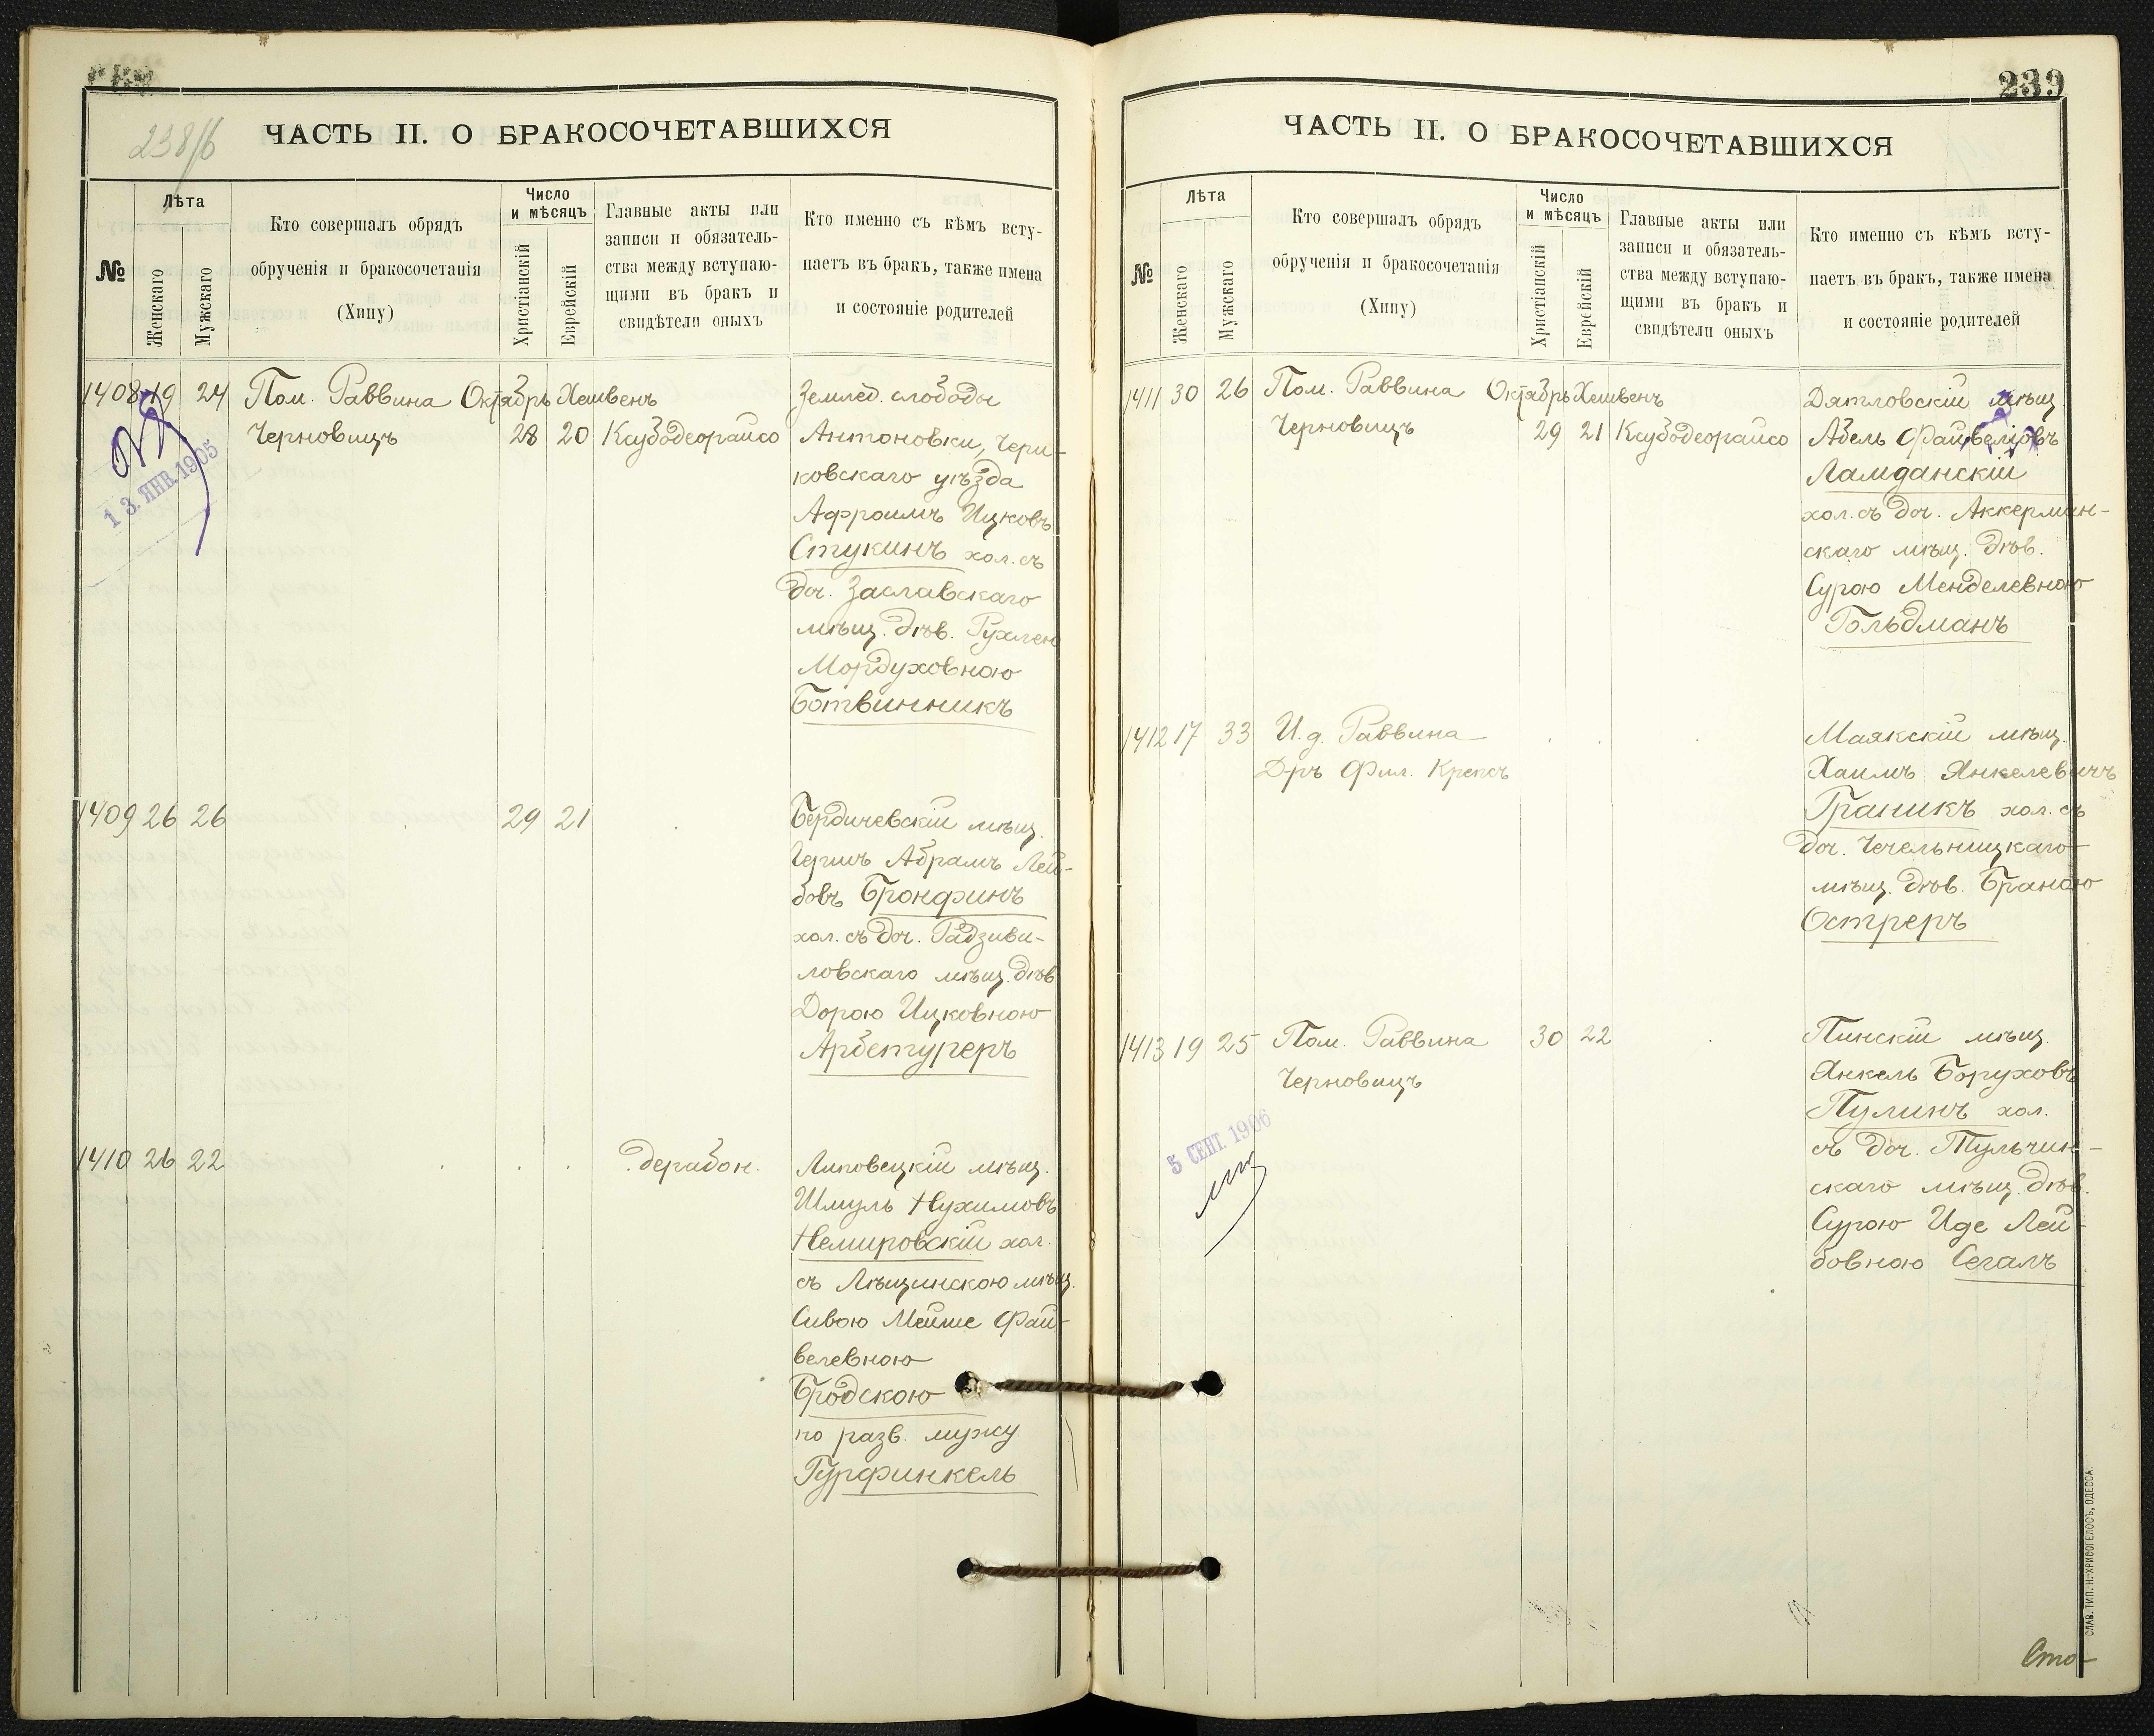 238/б
ЧАСТЬ II. О БРАКОСОЧЕТАВШИХСЯ
№
Лѣта
Женскаго
Мужскаго
Кто совершалъ обрядъ
обрученія и бракосочетанія
(Хипу)
Число
и мѣсяцъ
Христіанскій
Еврейскій
Главные акты или
записи и обязатель-
ства между вступаю-
щими въ бракъ и
свидѣтели оныхъ
Кто именно съ кѣмъ всту-
паетъ въ бракъ, также имена
и состояніе родителей
1408 19 24 Пом. Раввина Октябрь Хешвенъ
Черновицъ 28 20 Ксубодеорайсо
13. ЯНВ. 1905
Землед. слободы
Антоновки, Чери-
ковскаго уѣзда
Афроимъ Ицковъ
Стукинъ хол. съ
доч. Заславскаго
мѣщ. дѣв. Рухлею
Мордуховною
Ботвинникъ
1409 26 26 29 21
Бердичевскій мѣщ.
Гершъ Абрамъ Лей-
бовъ Бронфинъ
хол. съ доч. Радзиви-
ловскаго мѣщ. дѣв.
Дорою Ицковною
Арбетуреръ
1410 26 22 дерабон.
Липовецкій мѣщ.
Шмуль Нухимовъ
Немировскій хол.
съ Лѣщинскою мѣщ.
Сивою Мейте Фай-
велевною
Бродскою
по разв. мужу
Гурфинкель
239
ЧАСТЬ II. О БРАКОСОЧЕТАВШИХСЯ
№
Лѣта
Женскаго
Мужскаго
Кто совершалъ обрядъ
обрученія и бракосочетанія
(Хипу)
Число
и мѣсяцъ
Христіанскій
Еврейскій
Главные акты или
записи и обязатель-
ства между вступаю-
щими въ бракъ и
свидѣтели оныхъ
Кто именно съ кѣмъ всту-
паетъ въ бракъ, также имена
и состояніе родителей
1411 30 26 Пом. Раввина Октябрь Хешвенъ
Черновицъ 29 21 Ксубодеорайсо
Дятловскій мѣщ.
Абель Файвелювъ
Ламданскій
хол. съ доч. Аккерман-
скаго мѣщ. дѣв.
Сурою Менделевною
Гольдманъ
1412 17 33 И. д. Раввина
Д-ръ Фил. Крепсъ
Маякскій мѣщ.
Хаимъ Янкелевичъ
Граникъ хол. съ
доч. Чечельницкаго
мѣщ. дѣв. Браною
Остреръ
1413 19 25 Пом. Раввина 30 22
Черновицъ
5 СЕНТ. 1906
Пинскій мѣщ.
Янкель Боруховъ
Пулинъ хол.
съ доч. Тульчин-
скаго мѣщ. дѣв.
Сурою Иде Лей-
бовною Сегалъ
СЛАВ. ТИП. Н. ХРИСОГЕЛОСЪ, ОДЕССА.
Сто-